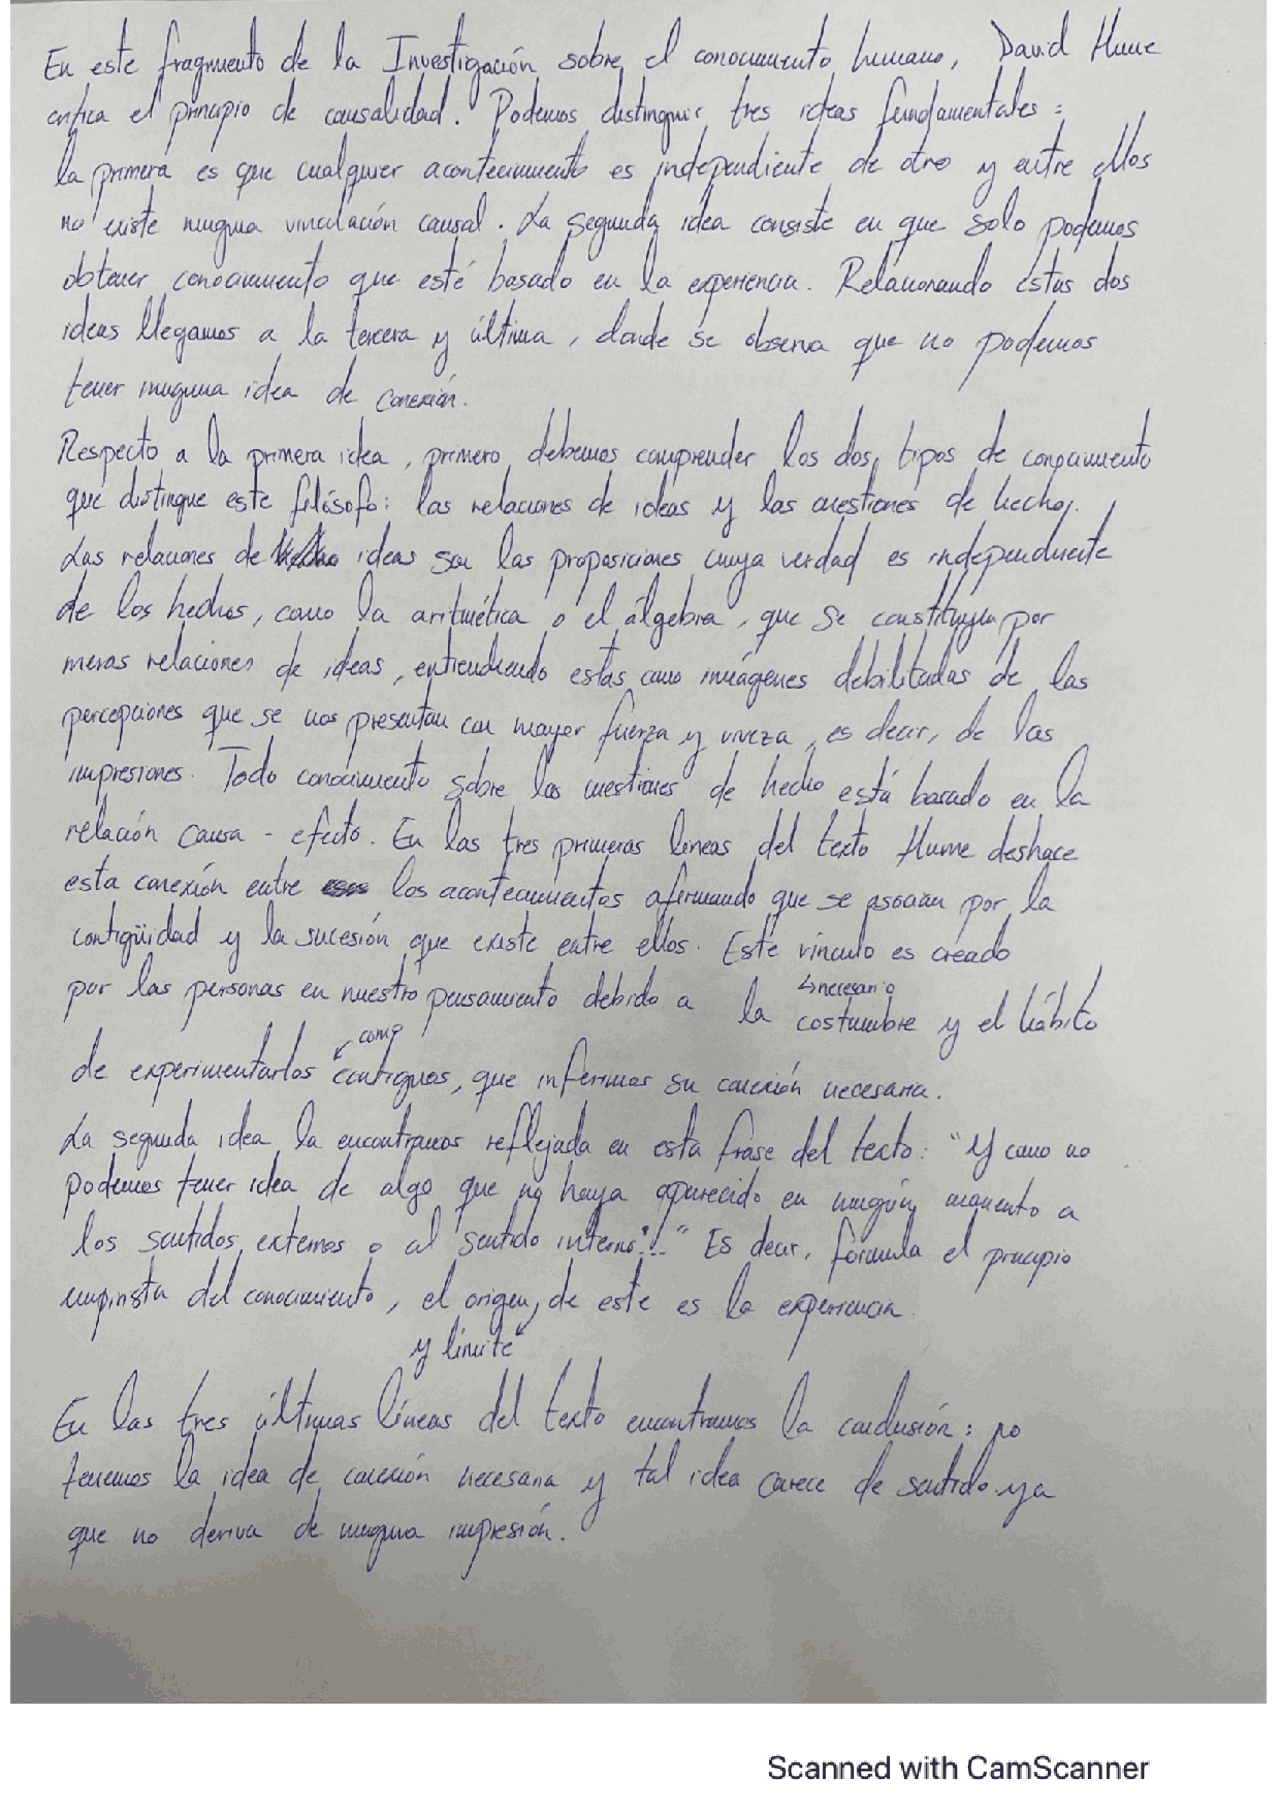 En este fragmento de la Investigación sobre el conocimiento humano, David Hume
critica el principio de causalidad. Podemos distinguir tres ideas fundamentales:
la primera es que cualquier acontecimiento es independiente de otro y entre ellos
no existe ninguna vinculación causal. La segunda idea consiste en que solo podemos
obtener conocimiento que esté basado en la experiencia. Relacionando estas dos
ideas llegamos a la tercera y última, donde se observa que no podemos
tener ninguna idea de conexión.
Respecto a la primera idea, primero debemos comprender los dos tipos de conocimiento
que distingue este filósofo: las relaciones de ideas y las cuestiones de hecho.
Las relaciones de ideas son las proposiciones cuya verdad es independiente
de los hechos, como la aritmética o el álgebra, que se constituyen por
meras relaciones de ideas, entendiendo estas como imágenes debilitadas de las
percepciones que se nos presentan con mayor fuerza y viveza, es decir, de las
impresiones. Todo conocimiento sobre las cuestiones de hecho está basado en la
relación causa - efecto. En las tres primeras líneas del texto Hume deshace
esta conexión entre los acontecimientos afirmando que se asocian por la
contigüidad y la sucesión que existe entre ellos. Este vínculo es creado
↳ necesario
por las personas en nuestro pensamiento debido a la costumbre y el hábito
como
de experimentarlos contiguos, que inferimos su conexión necesaria.
La segunda idea la encontramos reflejada en esta frase del texto: "Y como no
podemos tener idea de algo que no haya aparecido en ningún momento a
los sentidos externos o al sentido interno..." Es decir, formula el principio
empirista del conocimiento, el origen de este es la experiencia.
y límite
En las tres últimas líneas del texto encontramos la conclusión: no
tenemos la idea de conexión necesaria y tal idea carece de sentido ya
que no deriva de ninguna impresión.
Scanned with CamScanner